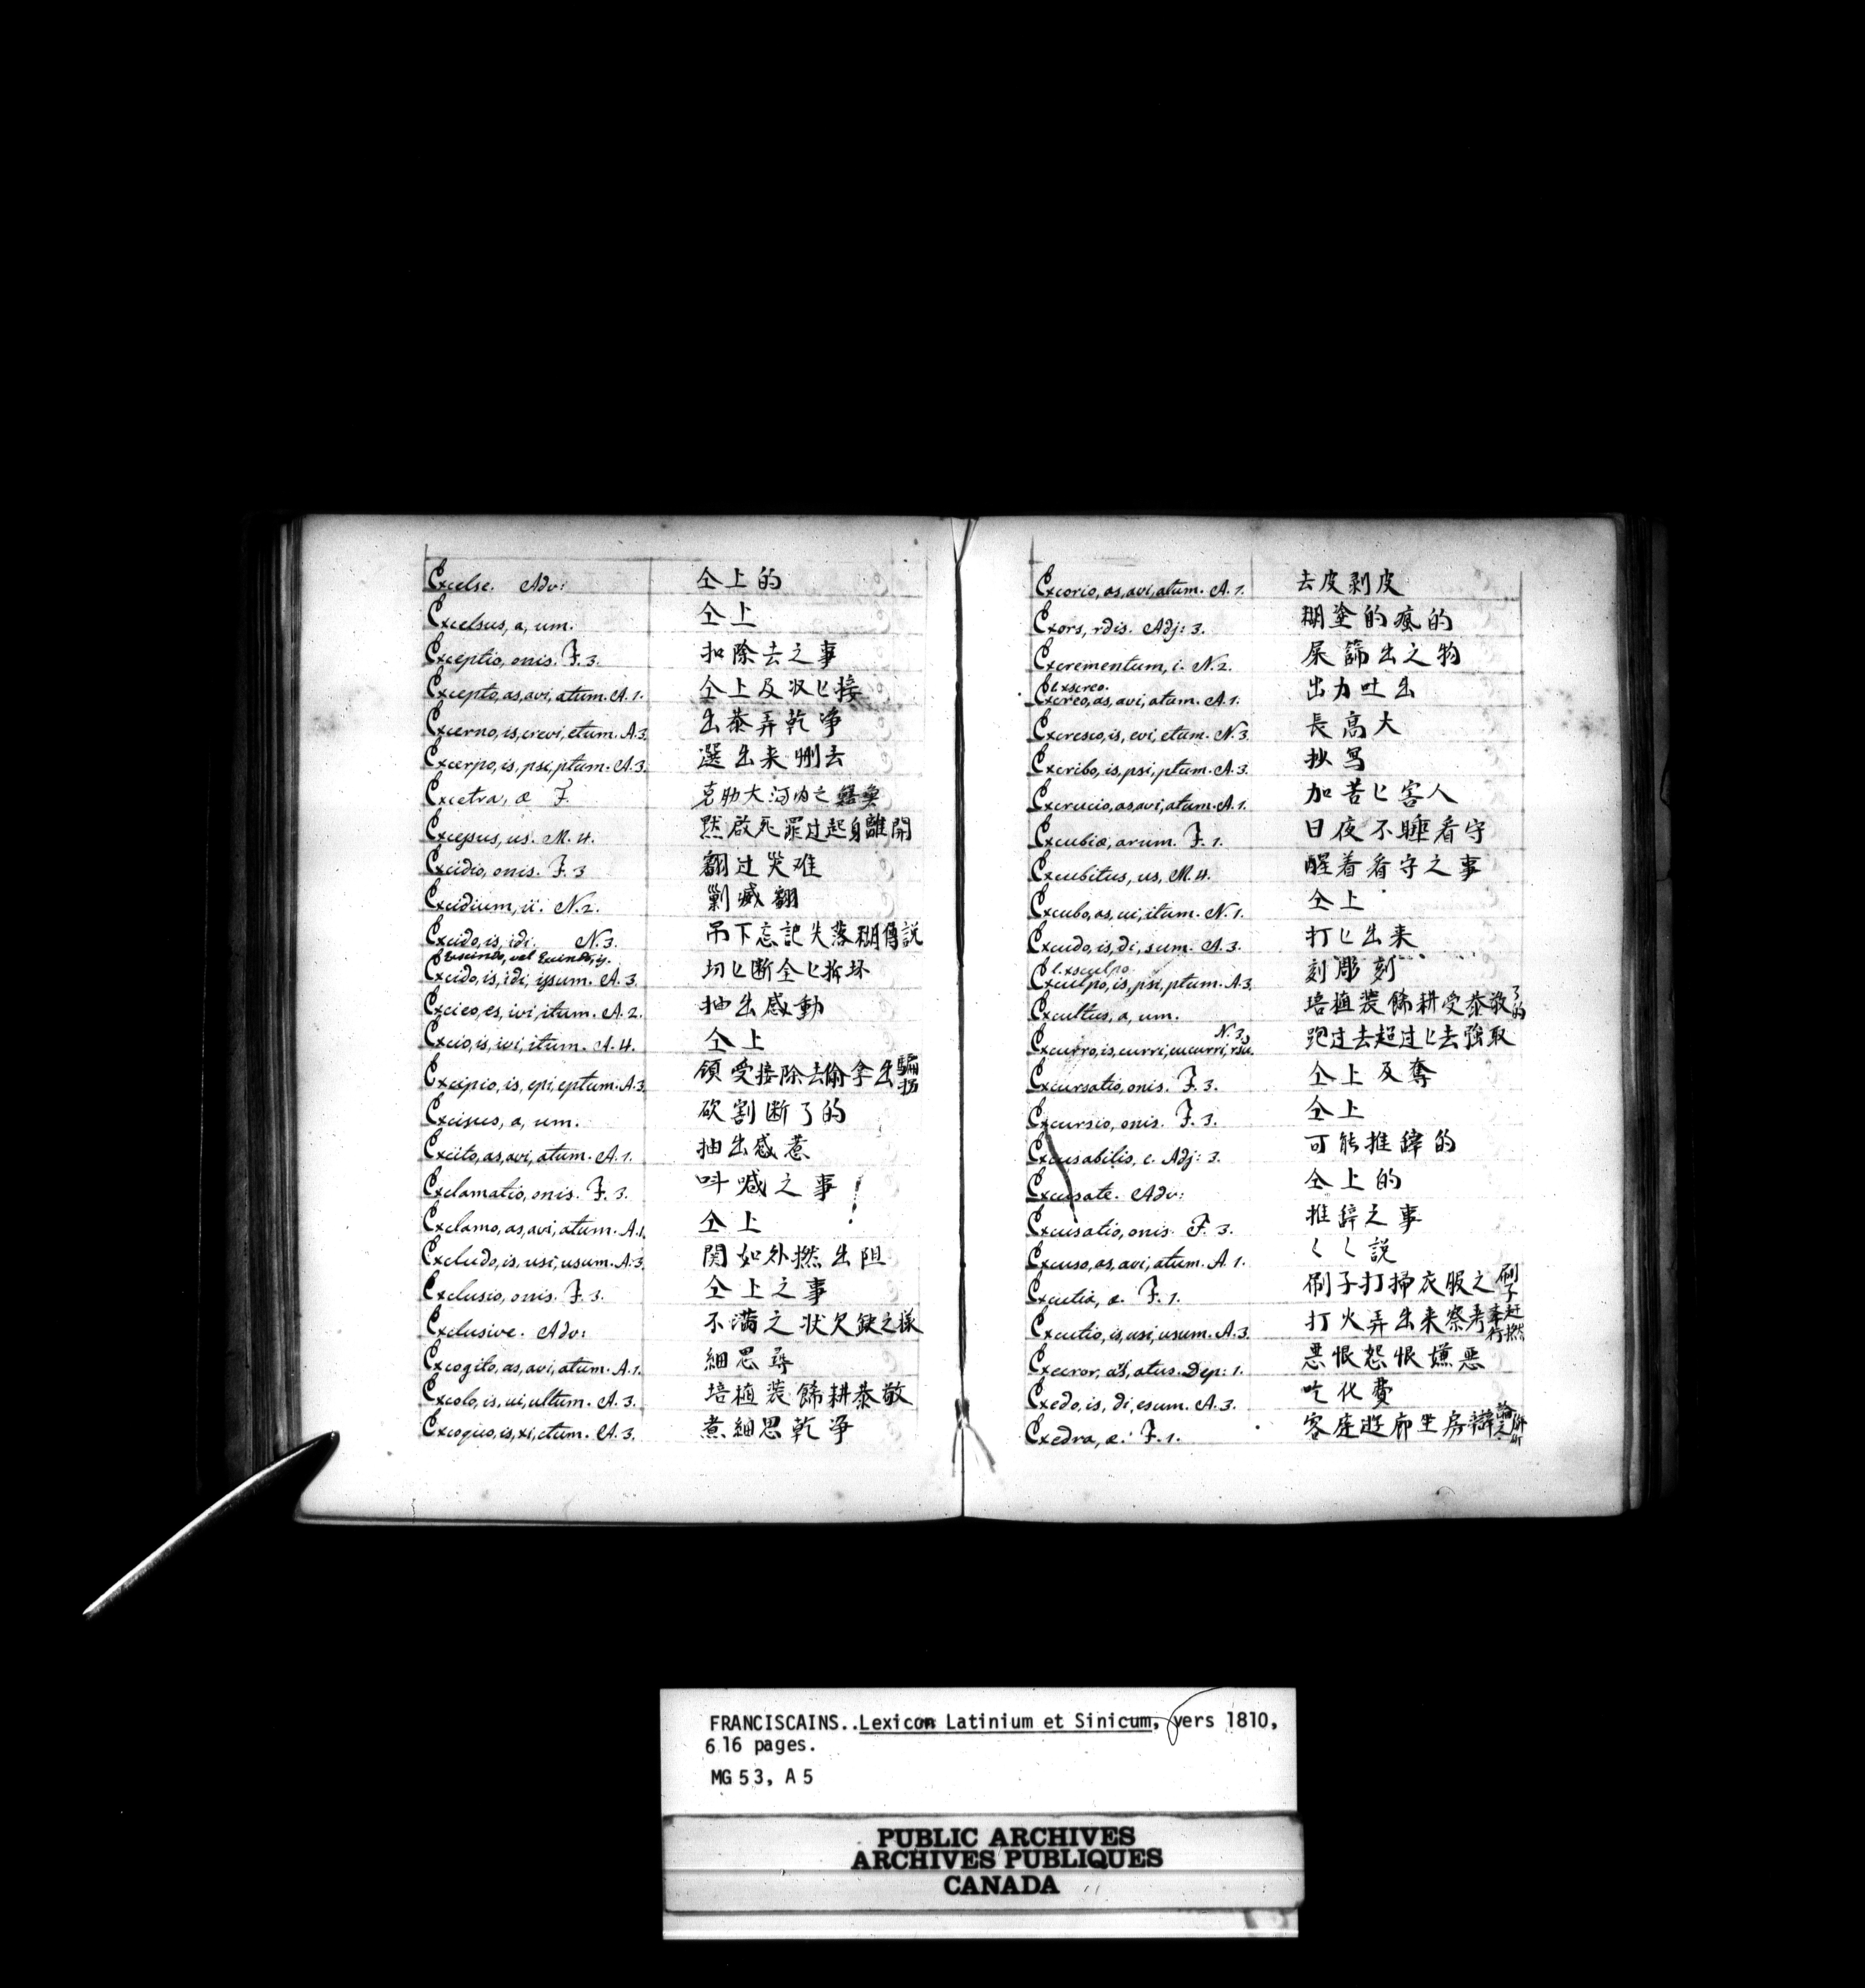 Excelse. Adv: 仝上的
Excelsus, a, um. 仝上
Exceptio, onis. F. 3. 扣除去之事
Excepto, as, avi, atum. A. 1. 仝上及収匕接
Excerno, is, crevi, etum. A. 3. 出恭弄乾净
Excerpo, is, psi, ptum. A. 3. 選出来刪去
Excetra, æ F. 克肋大河内之
Excessus, us. M. 4. 黙啟死罪过起身離開
Excidio, onis. F. 3 翻过災难
Excidium, ii. N. 2. 剿滅翻
Excido, is, idi. N. 3. 吊下忘記失落糊傳説
Exscindo, vel Excindo, is.
Excido, is, idi, isum. A. 3. 切匕断仝匕拆坏
Excieo, es, ivi, itum. A. 2. 抽出感動
Excio, is, ivi, itum. A. 4. 仝上
Excipio, is, epi, eptum. A. 3. 領受接除去偷拿出騙拐
Excisus, a, um. 砍割断了的
Excito, as, avi, atum. A. 1. 抽出感惹
Exclamatio, onis. F. 3. 呌喊之事
Exclamo, as, avi, atum. A. 1. 仝上
Excludo, is, usi, usum. A. 3. 関如外撚出阻
Exclusio, onis. F. 3. 仝上之事
Exclusive. Adv: 不满之状欠缺之様
Excogito, as, avi, atum. A. 1. 細思尋
Excolo, is, ui, ultum. A. 3. 培植装餙耕恭敬
Excoquo, is, xi, ctum. A. 3. 煮細思乾净
Excorio, as, avi, atum. A. 1. 去皮剥皮
Exors, rdis. Adj: 3. 糊塗的瘋的
Excrementum, i. N. 2. 屎篩出之物
l. exscreo.
Excreo, as, avi, atum. A. 1. 出力吐出
Excresco, is, evi, etum. N. 3. 長高大
Excribo, is, psi, ptum. A. 3. 抄写
Excrucio, as, avi, atum. A. 1. 加苦匕害人
Excubiæ, arum. F. 1. 日夜不睡看守
Excubitus, us, M. 4. 醒着看守之事
Excubo, as, ui, itum. N. 1. 仝上
Excudo, is, di, sum. A. 3. 打匕出来
l. exsculpo
Exculpo, is, psi, ptum. A. 3. 刻彫刻
Excultus, a, um. 培植装餙耕受恭敬了的
N. 3.
Excurro, is, curri, cucurri, rsu. 跑过去超过匕去強取
Excursatio, onis. F. 3. 仝上及奪
Excursio, onis. F. 3. 仝上
Excusabilis, e. Adj: 3. 可能推辞的
Excusate. Adv: 仝上的
Excusatio, onis. F. 3. 推辞之事
Excuso, as, avi, atum. A. 1. 〱〱説
Excutia, æ. F. 1. 刷子打掃衣服之刷子
Excutio, is, usi, usum. A. 3. 打火弄出来察考
Execror, aris, atus. Dep: 1. 悪恨怨恨嫌悪
Exedo, is, di, esum. A. 3. 吃化費
Exedra, æ. F. 1. 客座遊廊坐房
FRANCISCAINS..Lexicon Latinium et Sinicum, vers 1810,
616 pages.
MG 53, A 5
PUBLIC ARCHIVES
ARCHIVES PUBLIQUES
CANADA